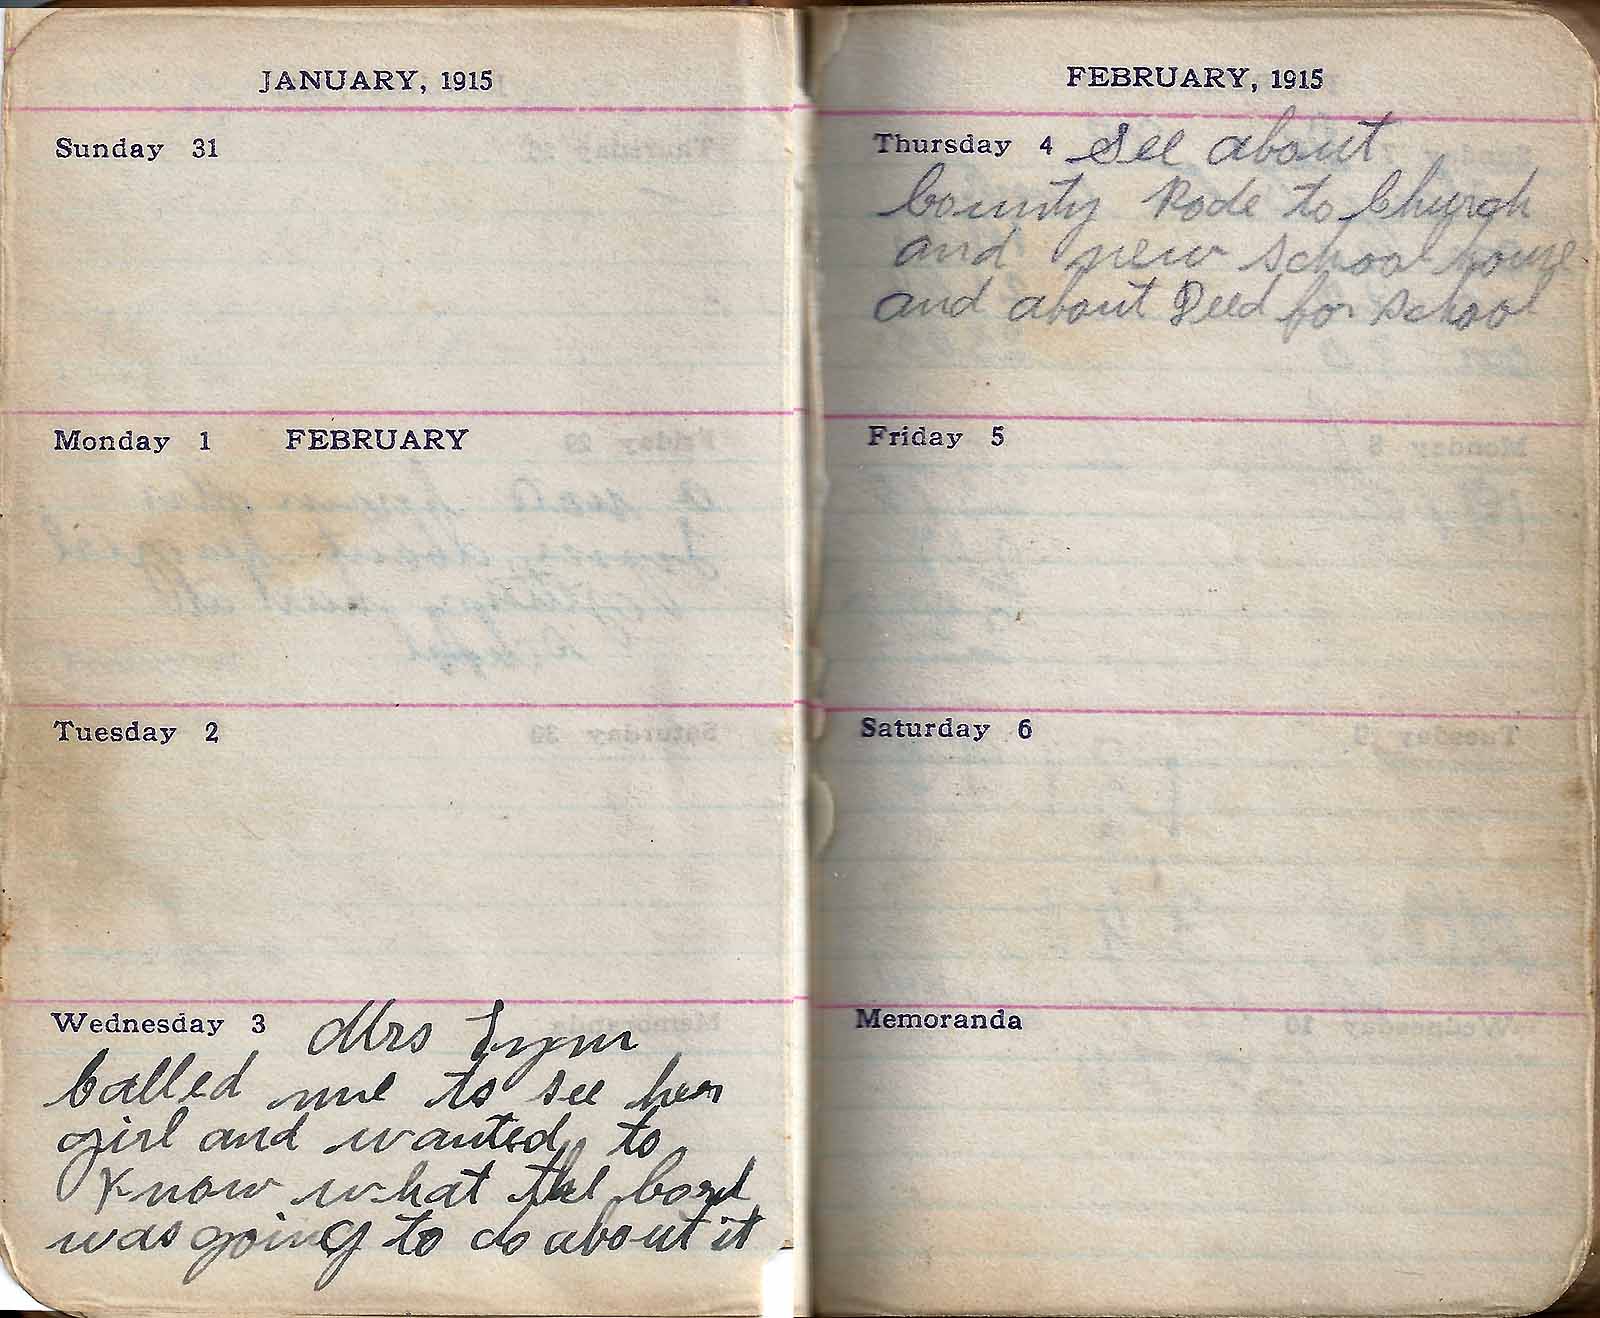 JANUARY, 1915
Sunday 31
Monday 1 FEBRUARY
Tuesday 2
Wednesday 3 Mrs
Called me to see her
girl and wanted to
Know what the bord
was going to do about it
FEBRUARY, 1915
Thursday 4 See about
County Rode to Church
and new school house
and about Deed for School
Friday 5
Saturday 6
Memoranda